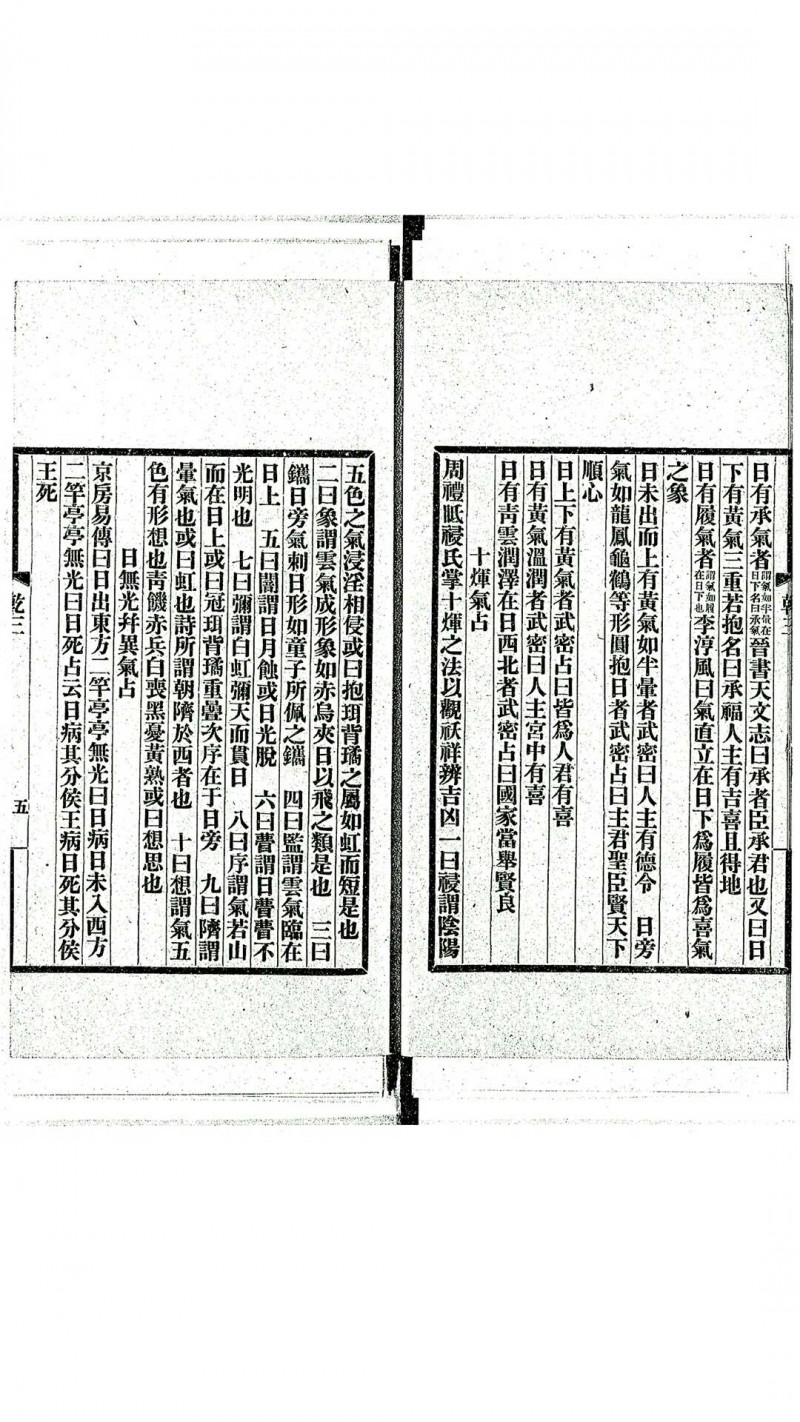 日有承氣者謂氣如半暈在日下名曰承氣晉書天文志曰承者臣承君也又曰日
下有黃氣三重若抱名曰承福人主有吉喜且得地
日有履氣者謂氣如履在日下也李淳風曰氣直立在日下爲履皆爲喜氣
之象
日未出而上有黃氣如半暈者武密曰人主有德令　日旁
氣如龍鳳龜鶴等形圓抱日者武密占曰主君聖臣賢天下
順心
日上下有黃氣者武密占曰皆爲人君有喜
日有黃氣溫潤者武密曰人主宮中有喜
日有靑雲潤澤在日西北者武密占曰國家當舉賢良
十煇氣占
周禮眡祲氏掌十煇之法以觀祅祥辨吉凶一曰祲謂陰陽
乾三
五色之氣浸淫相侵或曰抱珥背璚之屬如虹而短是也
二曰象謂雲氣成形象如赤烏夾日以飛之類是也　三曰
鑴日旁氣刺日形如童子所佩之鑴　四曰監謂雲氣臨在
日上　五曰闇謂日月蝕或日光脫　六曰瞢謂日瞢瞢不
光明也　七曰彌謂白虹彌天而貫日　八曰序謂氣若山
而在日上或曰冠珥背璚重疊次序在于日旁　九曰隮謂
暈氣也或曰虹也詩所謂朝隮於西者也　十曰想謂氣五
色有形想也靑饑赤兵白喪黑憂黃熟或曰想思也
日無光幷異氣占
京房易傳曰日出東方二竿亭亭無光曰日病日未入西方
二竿亭亭無光曰日死占云日病其分侯王病日死其分侯
王死
乾三
五